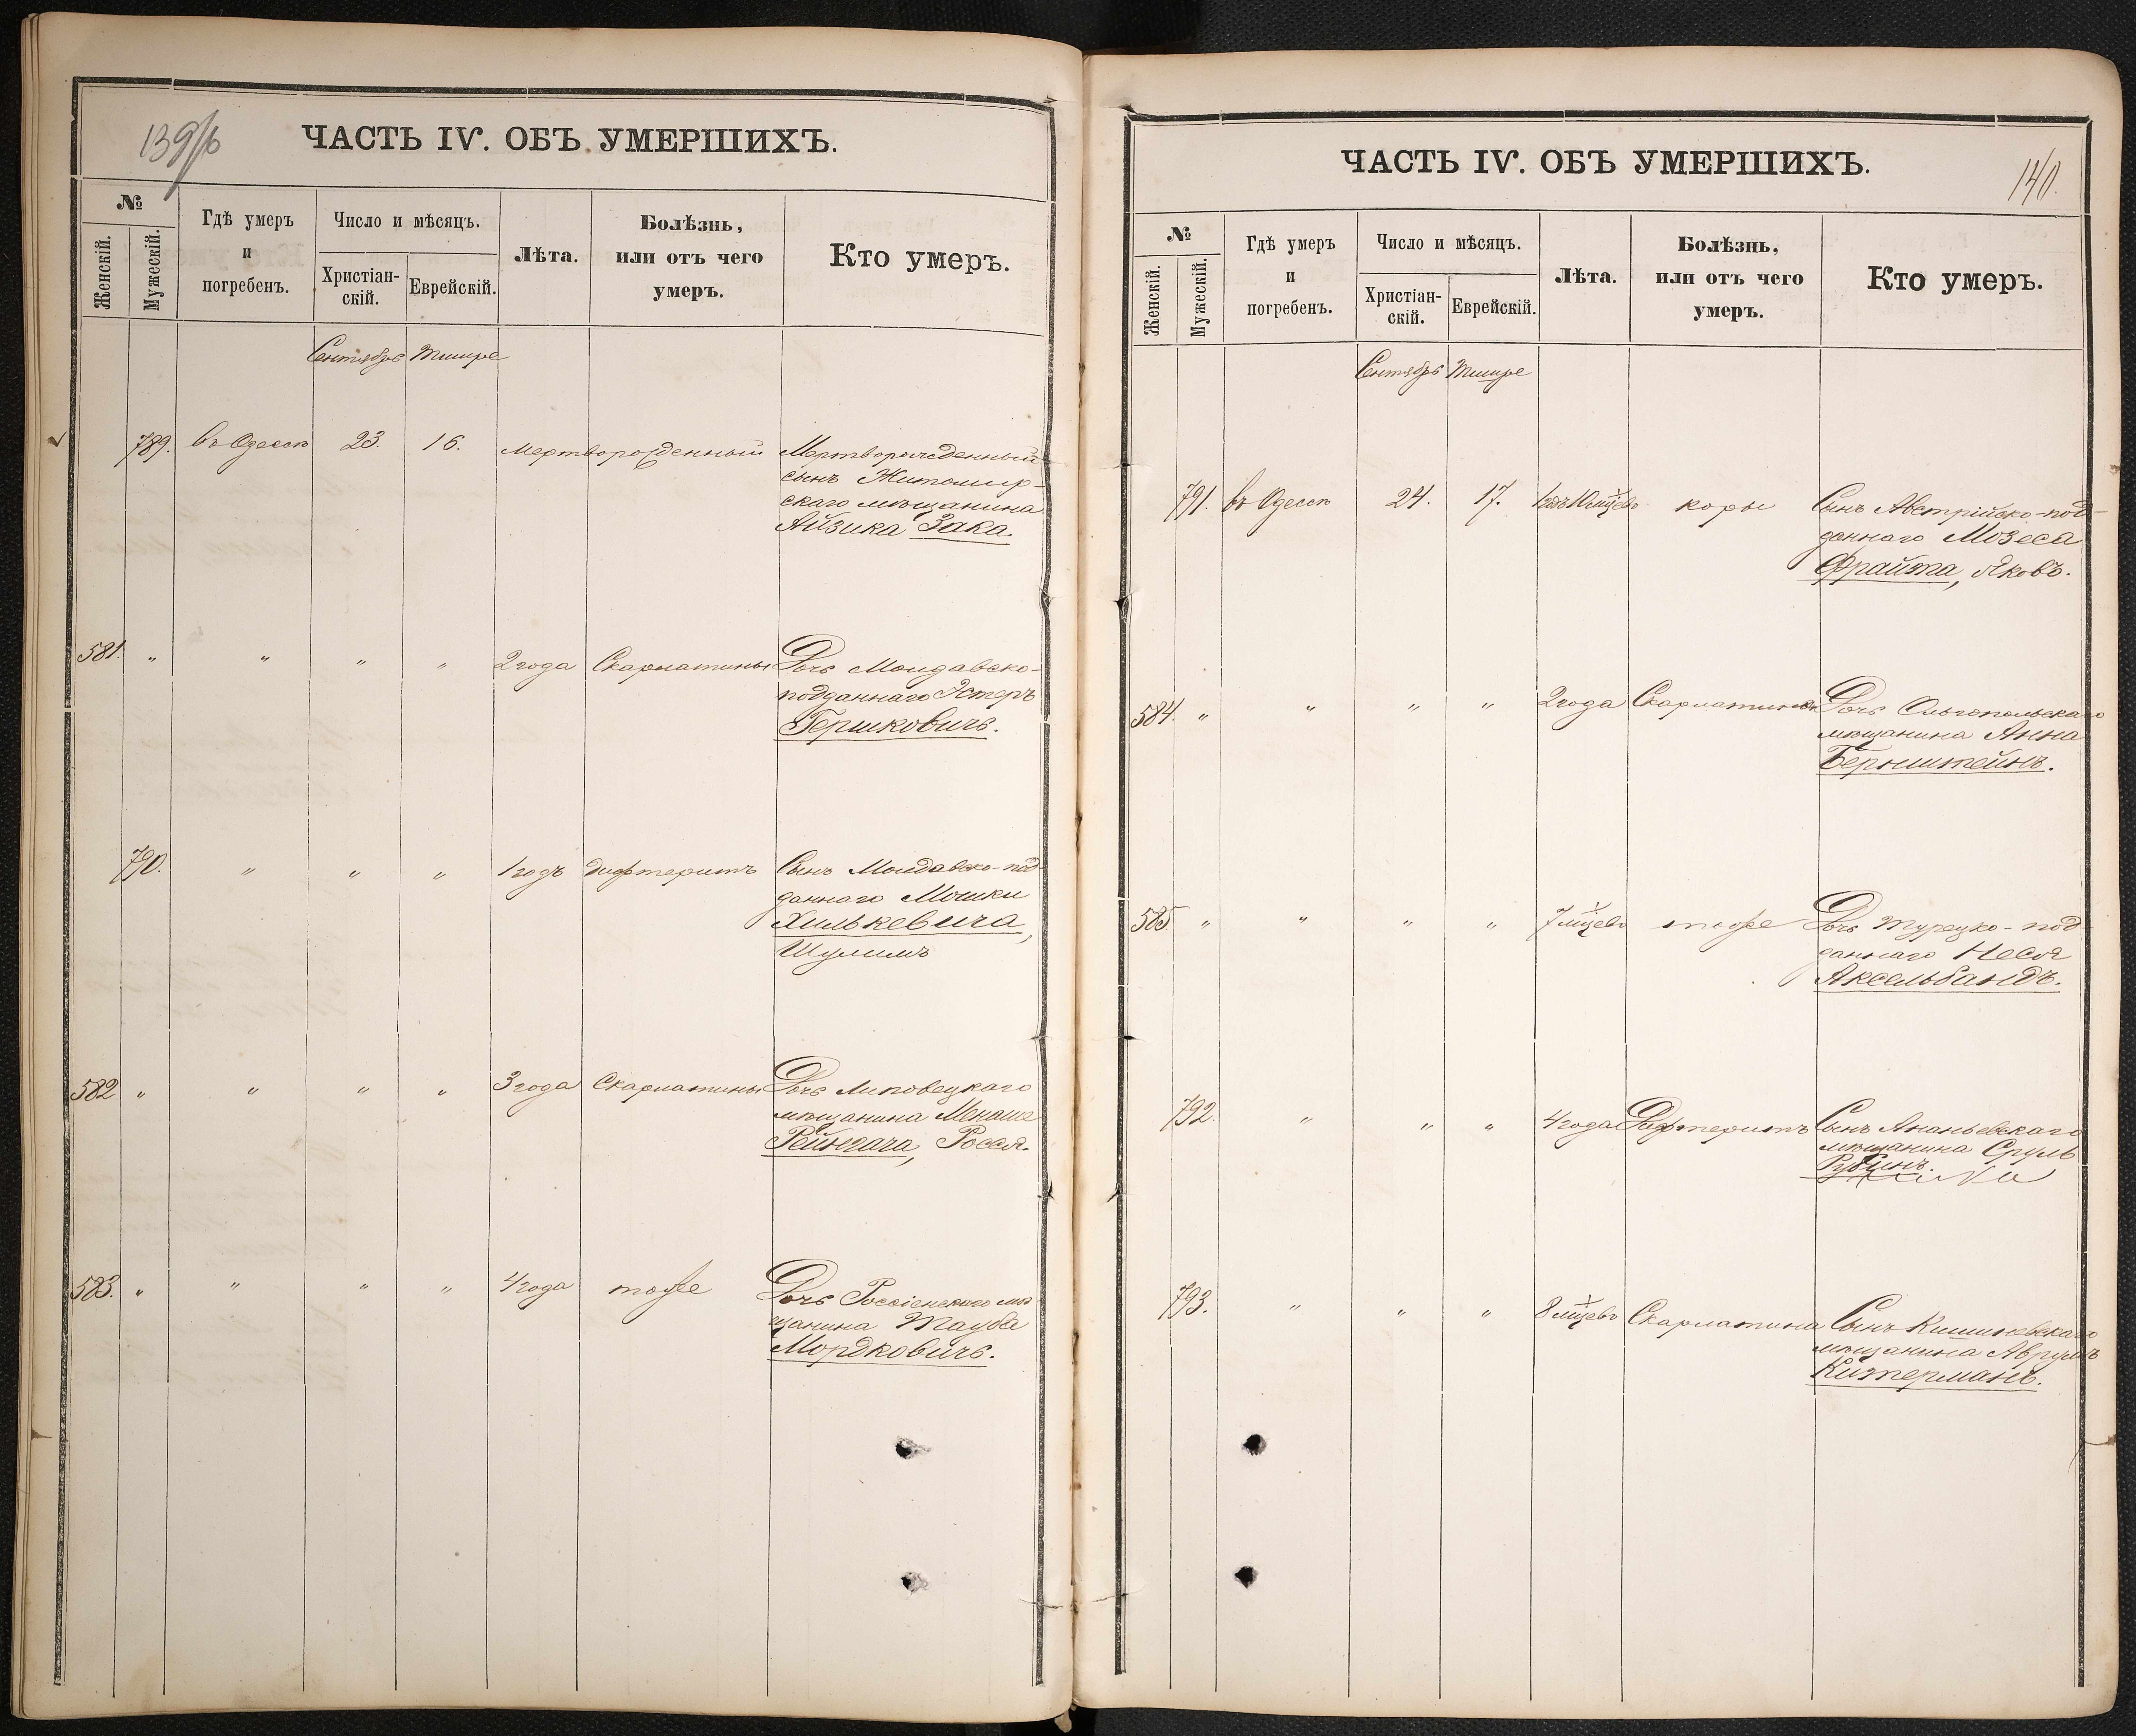 139/б
ЧАСТЬ IV. ОБЪ УМЕРШИХЪ.
№
Женскій.
Мужескій.
Гдѣ умеръ
и
погребенъ.
Число и мѣсяцъ.
Христіан-
скій.
Еврейскій.
Лѣта.
Болѣзнь,
или отъ чего
умеръ.
Кто умеръ.
Сентябрь Тишре
789. въ Одессѣ 23. 16. Мертворожденный Мертворожденный
сынъ Житомир-
скаго мѣщанина
Айзика Зака.
581. " " " " 2 года Скарлатины Дочь Молдавско-
подданнаго Эстеръ
Гершковичъ.
790. " " " 1 годъ дифтеритъ Сынъ Молдавско-под-
даннаго Мошки
Хилькевича,
Шулимъ
582 " " " " 3 года Скарлатины Дочь Липовецкаго
мѣщанина Менаше
Рейндача, Рося.
583. " " " " 4 года тоже Дочь Россіенскаго мѣ-
щанина Тауба
Мордковичъ.
140.
ЧАСТЬ IV. ОБЪ УМЕРШИХЪ.
№
Женскій.
Мужескій.
Гдѣ умеръ
и
погребенъ.
Число и мѣсяцъ.
Христіан-
скій.
Еврейскій.
Лѣта.
Болѣзнь,
или отъ чего
умеръ.
Кто умеръ.
Сентябрь Тишре
791. въ Одессѣ 24. 17. 1 годъ 10 мѣсцевъ коры Сынъ Австрійско-под-
даннаго Мозеса
Фрайта, Яковъ.
584. " " " " 2 года Скарлатины Дочь Ольгопольскаго
мѣщанина Анна
Бернштейнъ.
585 " " " " 7 мѣсцевъ тоже Дочь Турецко-под-
даннаго Неся
Аксельбандъ.
792. " " " 4 года Дифтеритъ Сынъ Ананьевскаго
мѣщанина Сруль
Рубинъ.
793. " " " 8 мѣсцевъ Скарлатина Сынъ Кишиневскаго
мѣщанина Аврумъ
Китерманъ.